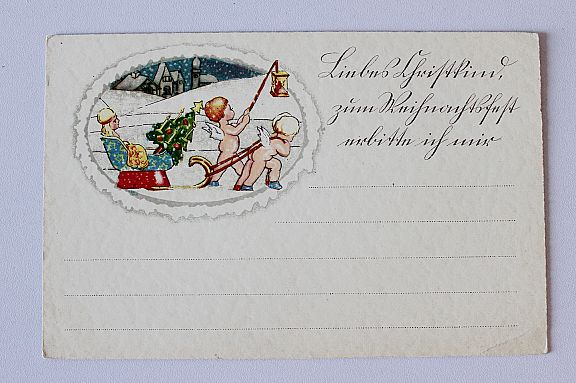 Liebes Christkind,
zum Weihnachtsfest
erbitte ich mir